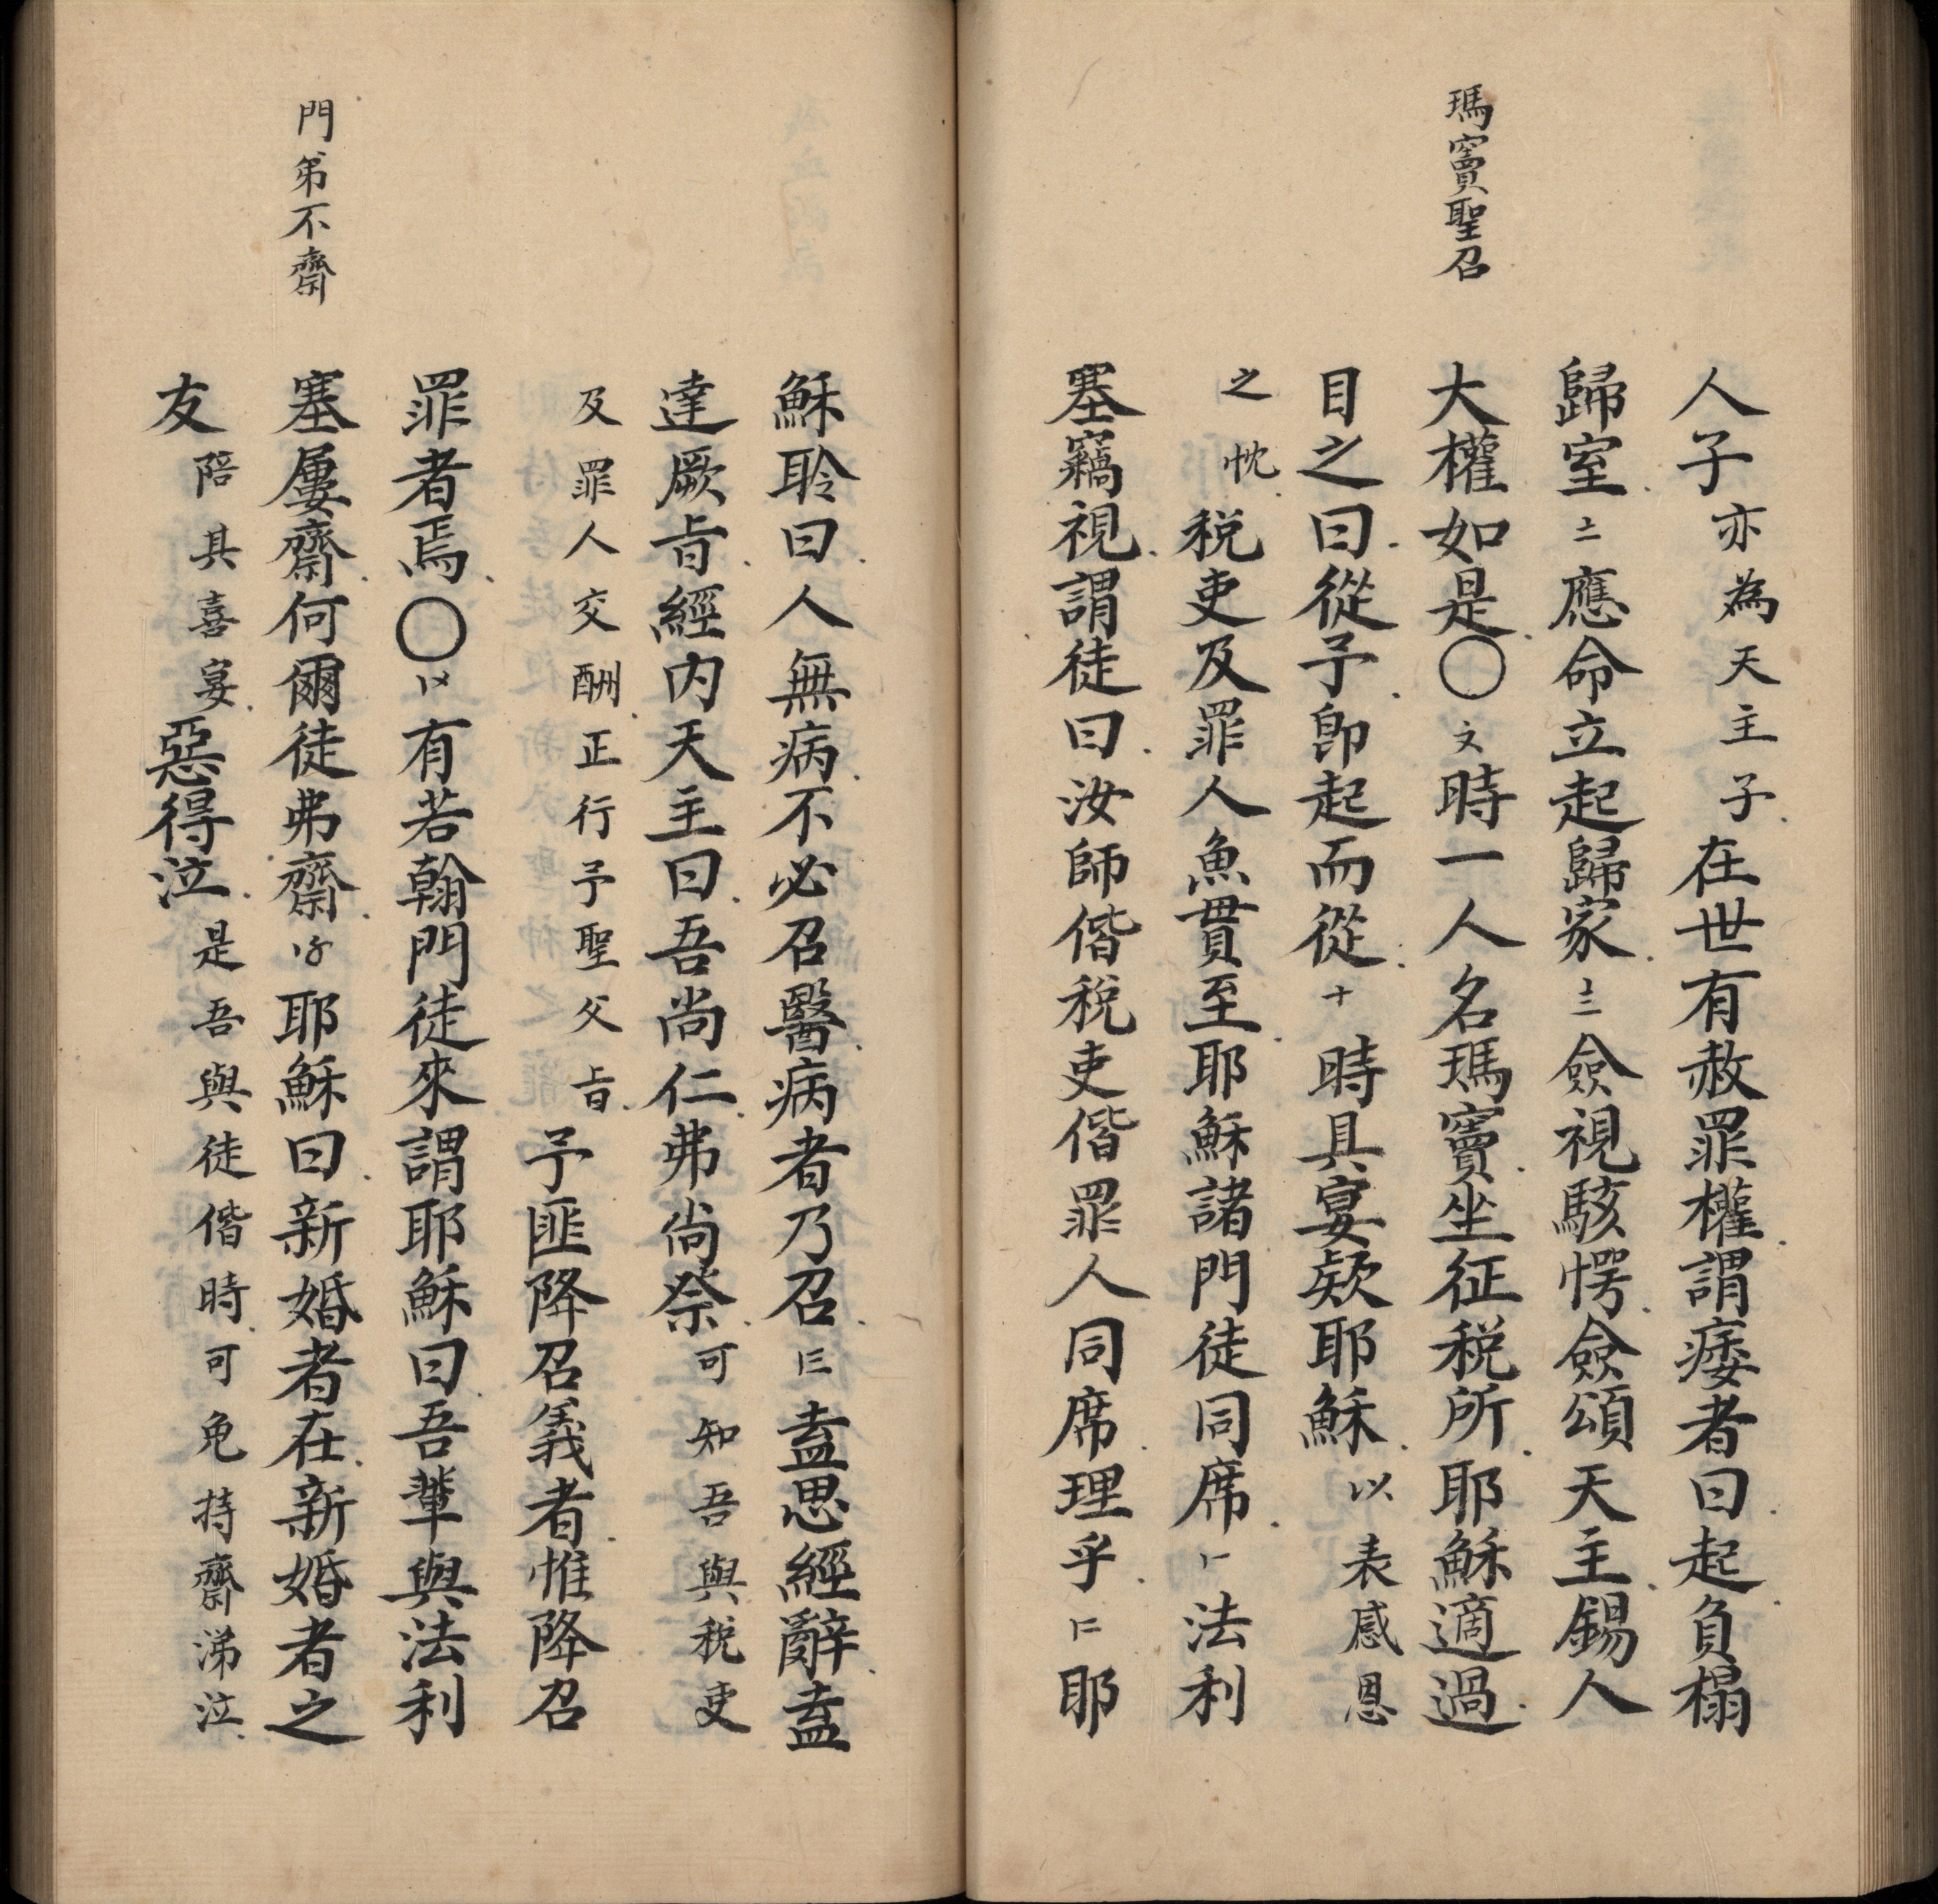 瑪竇聖召
人子亦為天主子在世有赦罪權謂痿者曰起負榻
歸室〧應命立起歸家〨僉視駭愕僉頌天主錫人
大權如是〇〩時一人名瑪竇坐征稅所耶穌適過
目之曰從予即起而從十時具宴欵耶穌以表感恩
之忱稅吏及罪人魚貫至耶穌諸門徒同席法利
塞竊視謂徒曰汝師偕稅吏偕罪人同席理乎耶
穌聆曰人無病不必召醫病者乃召盍思經辭盍
達厥旨經內天主曰吾尚仁弗尚祭可知吾與稅吏
及罪人交酬正行予聖父旨予匪降召義者惟降召
罪者焉〇有若翰門徒來謂耶穌曰吾輩與法利
門弟不齋
塞屢齋何爾徒弗齋耶穌曰新婚者在新婚者之
友陪其喜宴惡得泣是吾與徒偕時可免持齋涕泣